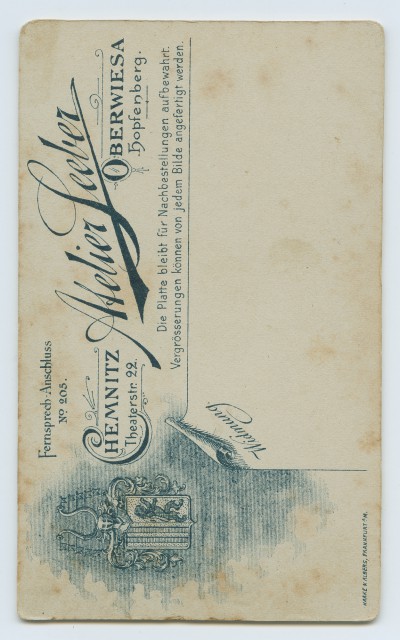 Fernsprech-Anschluss
No 205.
Atelier Leeber
CHEMNITZ
Theaterstr. 22.
OBERWIESA
Hopfenberg.
Die Platte bleibt für Nachbestellungen aufbewahrt.
Vergrösserungen können von jedem Bilde angefertigt werden.
Widmung
FRANKFURT A/M.